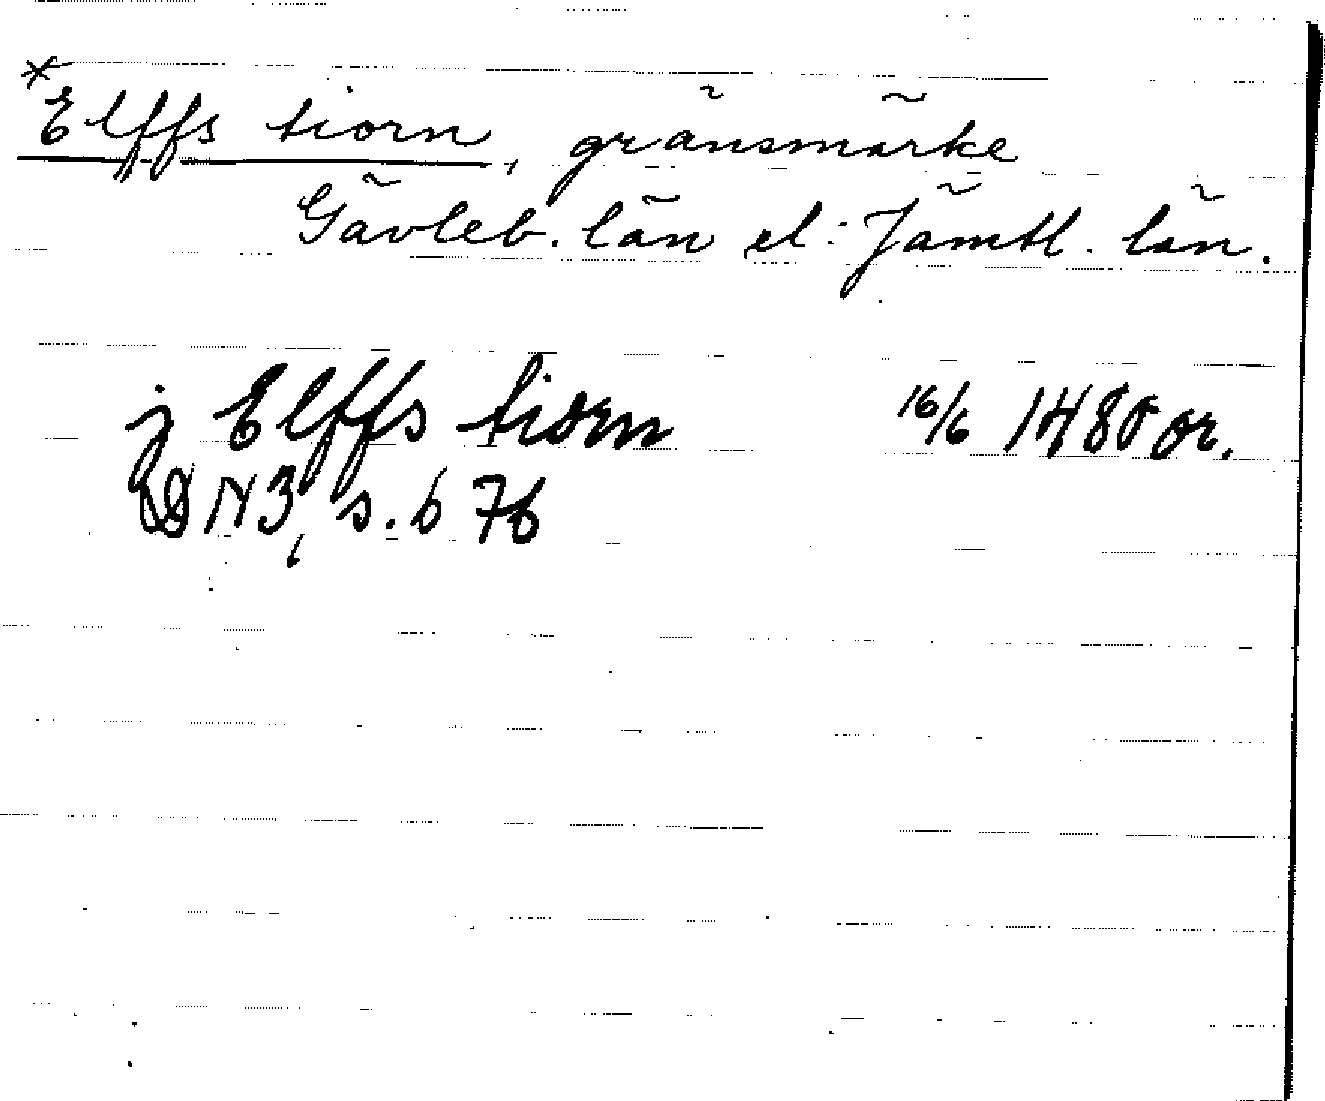 *Elffs tiorn, gränsmärke
Gävleb. län el. Jämtl. län.
j Elffs tiorn 16/6 1480 or.
DN 3, s. 676